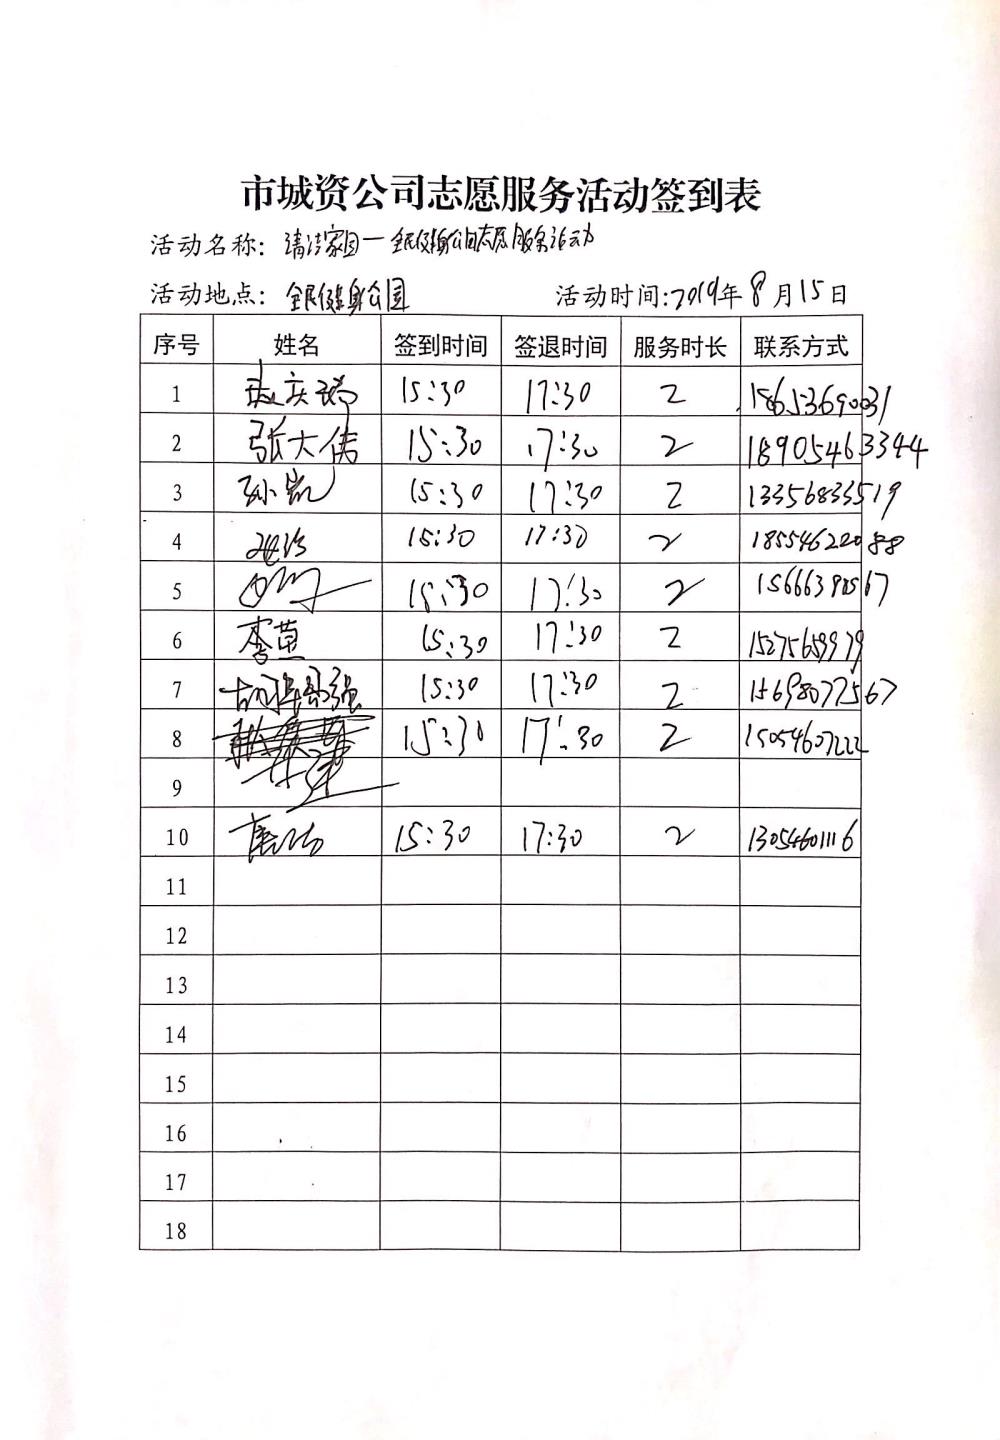 市城资公司志愿服务活动签到表
活动名称：清洁家园—全民健身公园志愿服务活动
活动地点：全民健身公园 活动时间:2019年8月15日
序号 姓名 签到时间 签退时间 服务时长 联系方式
1 15:30 17:30 2 18653690031
2 张大伟 15:30 17:30 2 18905463344
3 孙凯 15:30 17:30 2 13356833519
4 15:30 17:30 2 18554622088
5 15:30 17:30 2
6 李燕 15:30 17:30 2 15275659979
7 15:30 17:30 2 15698072567
8 15:30 17:30 2 15054607222
9
10 唐 15:30 17:30 2 13054601116
11
12
13
14
15
16
17
18